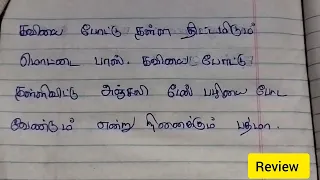 கவியை போட்டு தள்ள திட்டமிடும்
மொட்டை பாஸ். கவியை போட்டு
தள்ளிவிட்டு அஞ்சலி மேல் பழியை போட
வேண்டும் என்று நினைக்கும் பத்மா.
Review